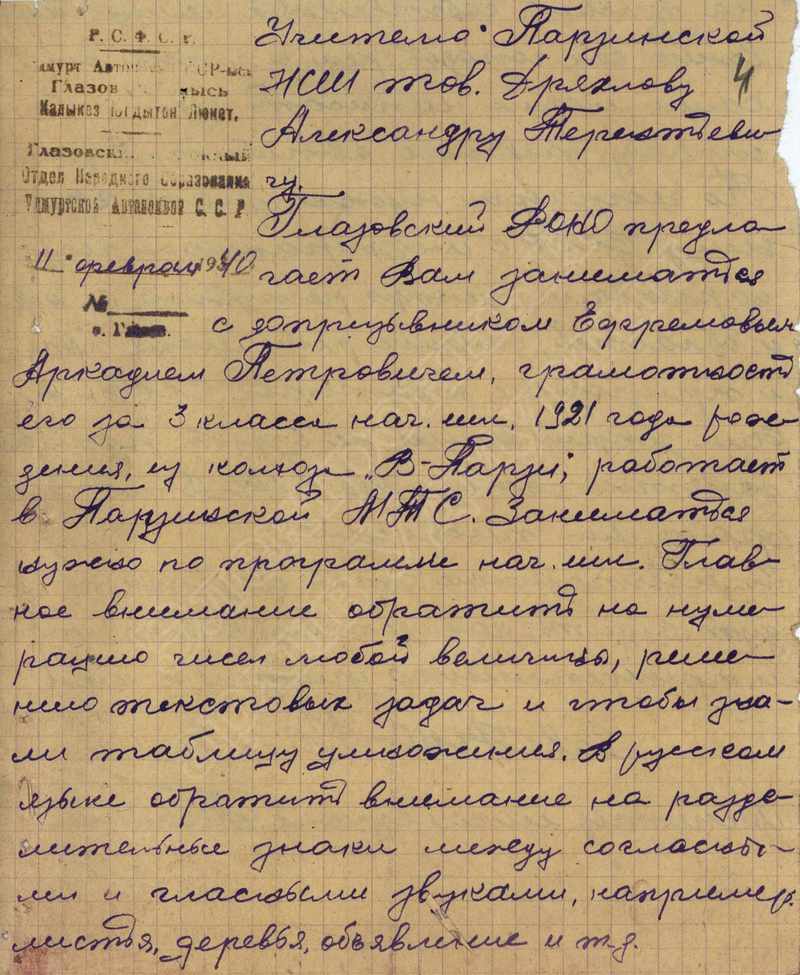 Р. С. Ф. С. Р.
Глазов
Калыкез Югдытон Люкет.
Отдел Народного Образования
Удмуртской Автономной С. С. Р
11 февраля 1940
№
Учителю Парзинской
НСШ тов. Дряхлову 4
Александру Терентьеви-
чу.
Глазовский РОНО предла-
гает Вам заниматься
с допризывником Ефремовым
Аркадием Петровичем, грамотность
его за 3 класса нач. шк. 1921 года рож-
дения, из колхоза „В-Парзи", работает
в Парзинской МТС. Заниматься
нужно по программе нач. шк. Глав-
ное внимание обратить на нуме-
рацию чисел любой величины, реше-
нию текстовых задач и чтобы зна-
ли таблицу умножения. В русском
языке обратить внимание на разде-
лительные знаки между согласны-
ми и гласными звуками, например.
листья, деревья, объявление и т.д.